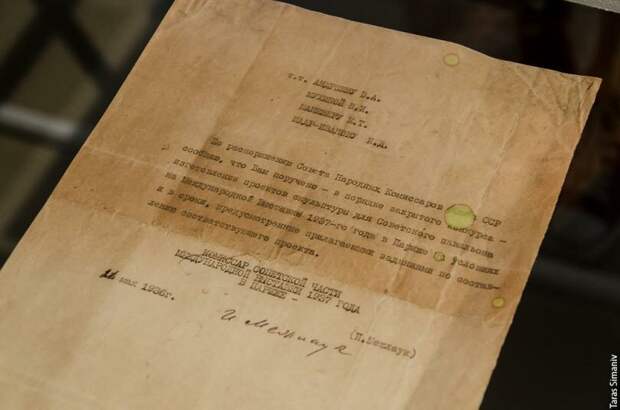 т.т. АНДРЕЕВУ В.А.
МУХИНОЙ В.И.
МАНИЗЕРУ М.Г.
ШАДР-ИВАНОВУ И.Д.
По распоряжению Совета Народных Комиссаров ССР
сообщаю, что Вам поручено - в порядке закрытого конкурса -
изготовление проектов скульптуры для Советского павильона
на Международной Выставке 1937-го года в Париже условиях
и в сроки, предусмотренные прилагаемым заданием по состав-
лению соответствующего проекта.
КОМИССАР СОВЕТСКОЙ ЧАСТИ
МЕЖДУНАРОДНОЙ ВЫСТАВКИ 1937 ГОДА
В ПАРИЖЕ -
мая 1936г.
И Межлаук
(И.Межлаук)
Taras Simaniv